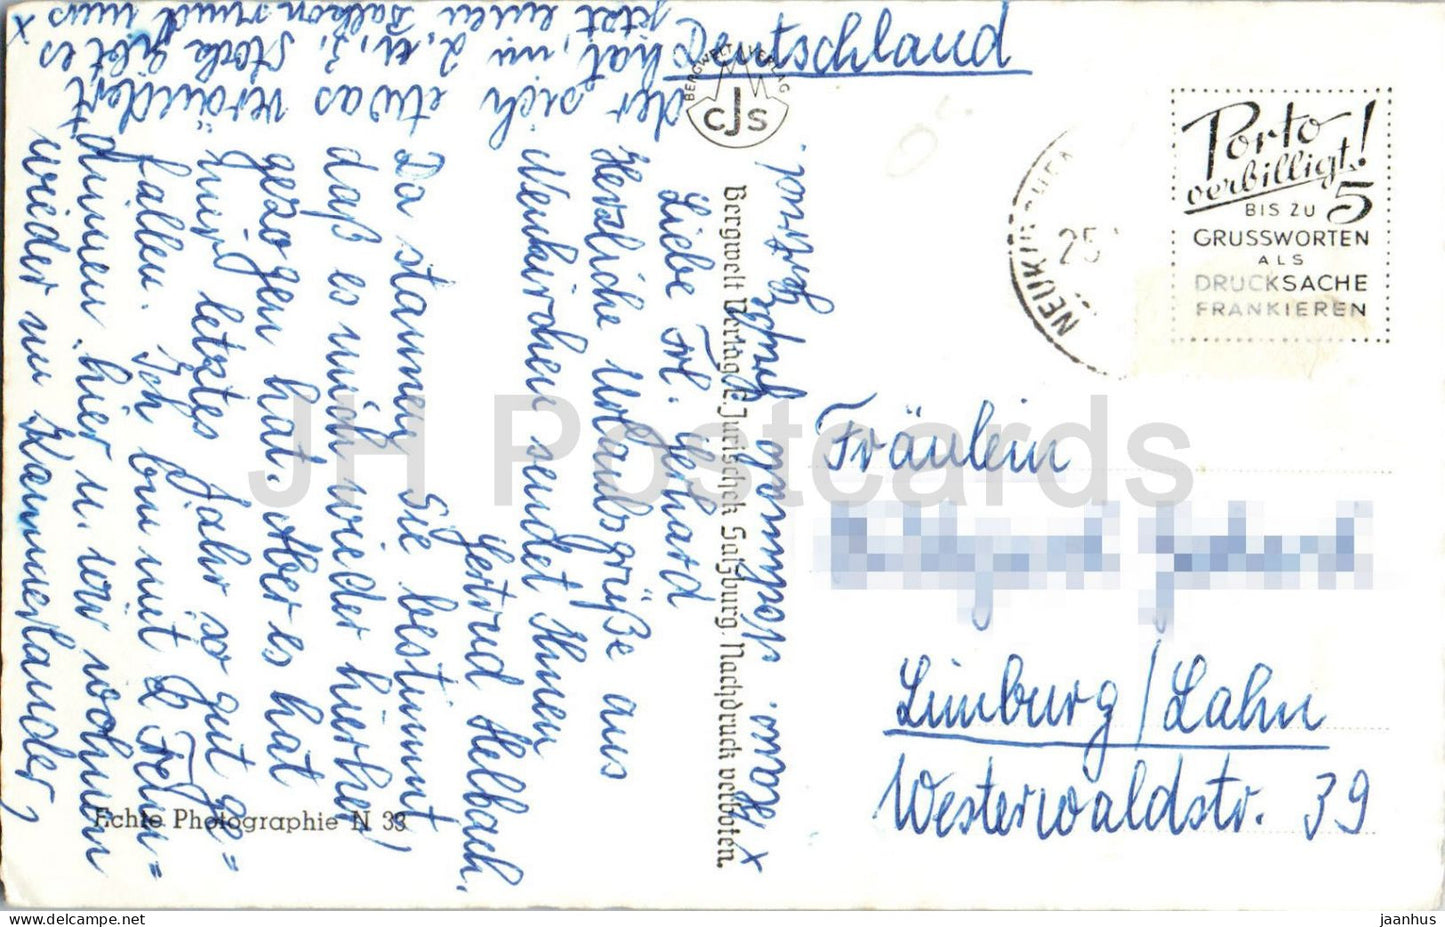 Deutschland
BERGWELT VERLAG
CJS
Porto
verbilligt!
BIS ZU 5
GRUSSWORTEN
ALS
DRUCKSACHE
FRANKIEREN
NEUKIRCHEN
25
Liebe Frl. Gerhard
Herzliche Urlaubsgrüße aus
Neukirchen sendet Ihnen
Gertrud Helbach.
Da staunen Sie bestimmt,
daß es mich wieder hierher
gezogen hat. Aber es hat
mir letztes Jahr so gut ge=
fallen. Ich bin mit 2 Freun=
dinnen hier u. wir wohnen
wieder im Kammerlander,
der sich etwas verändert
hat, im 2. u. 3. Stock gibt es
jetzt einen Balkon rund ums x
x Haus.
Bergwelt Verlag C. Jurischek Salzburg. Nachdruck verboten.
Echte Photographie N 33
Fräulein
Limburg/Lahn
Westerwaldstr. 39
JH Postcards
jaanhus